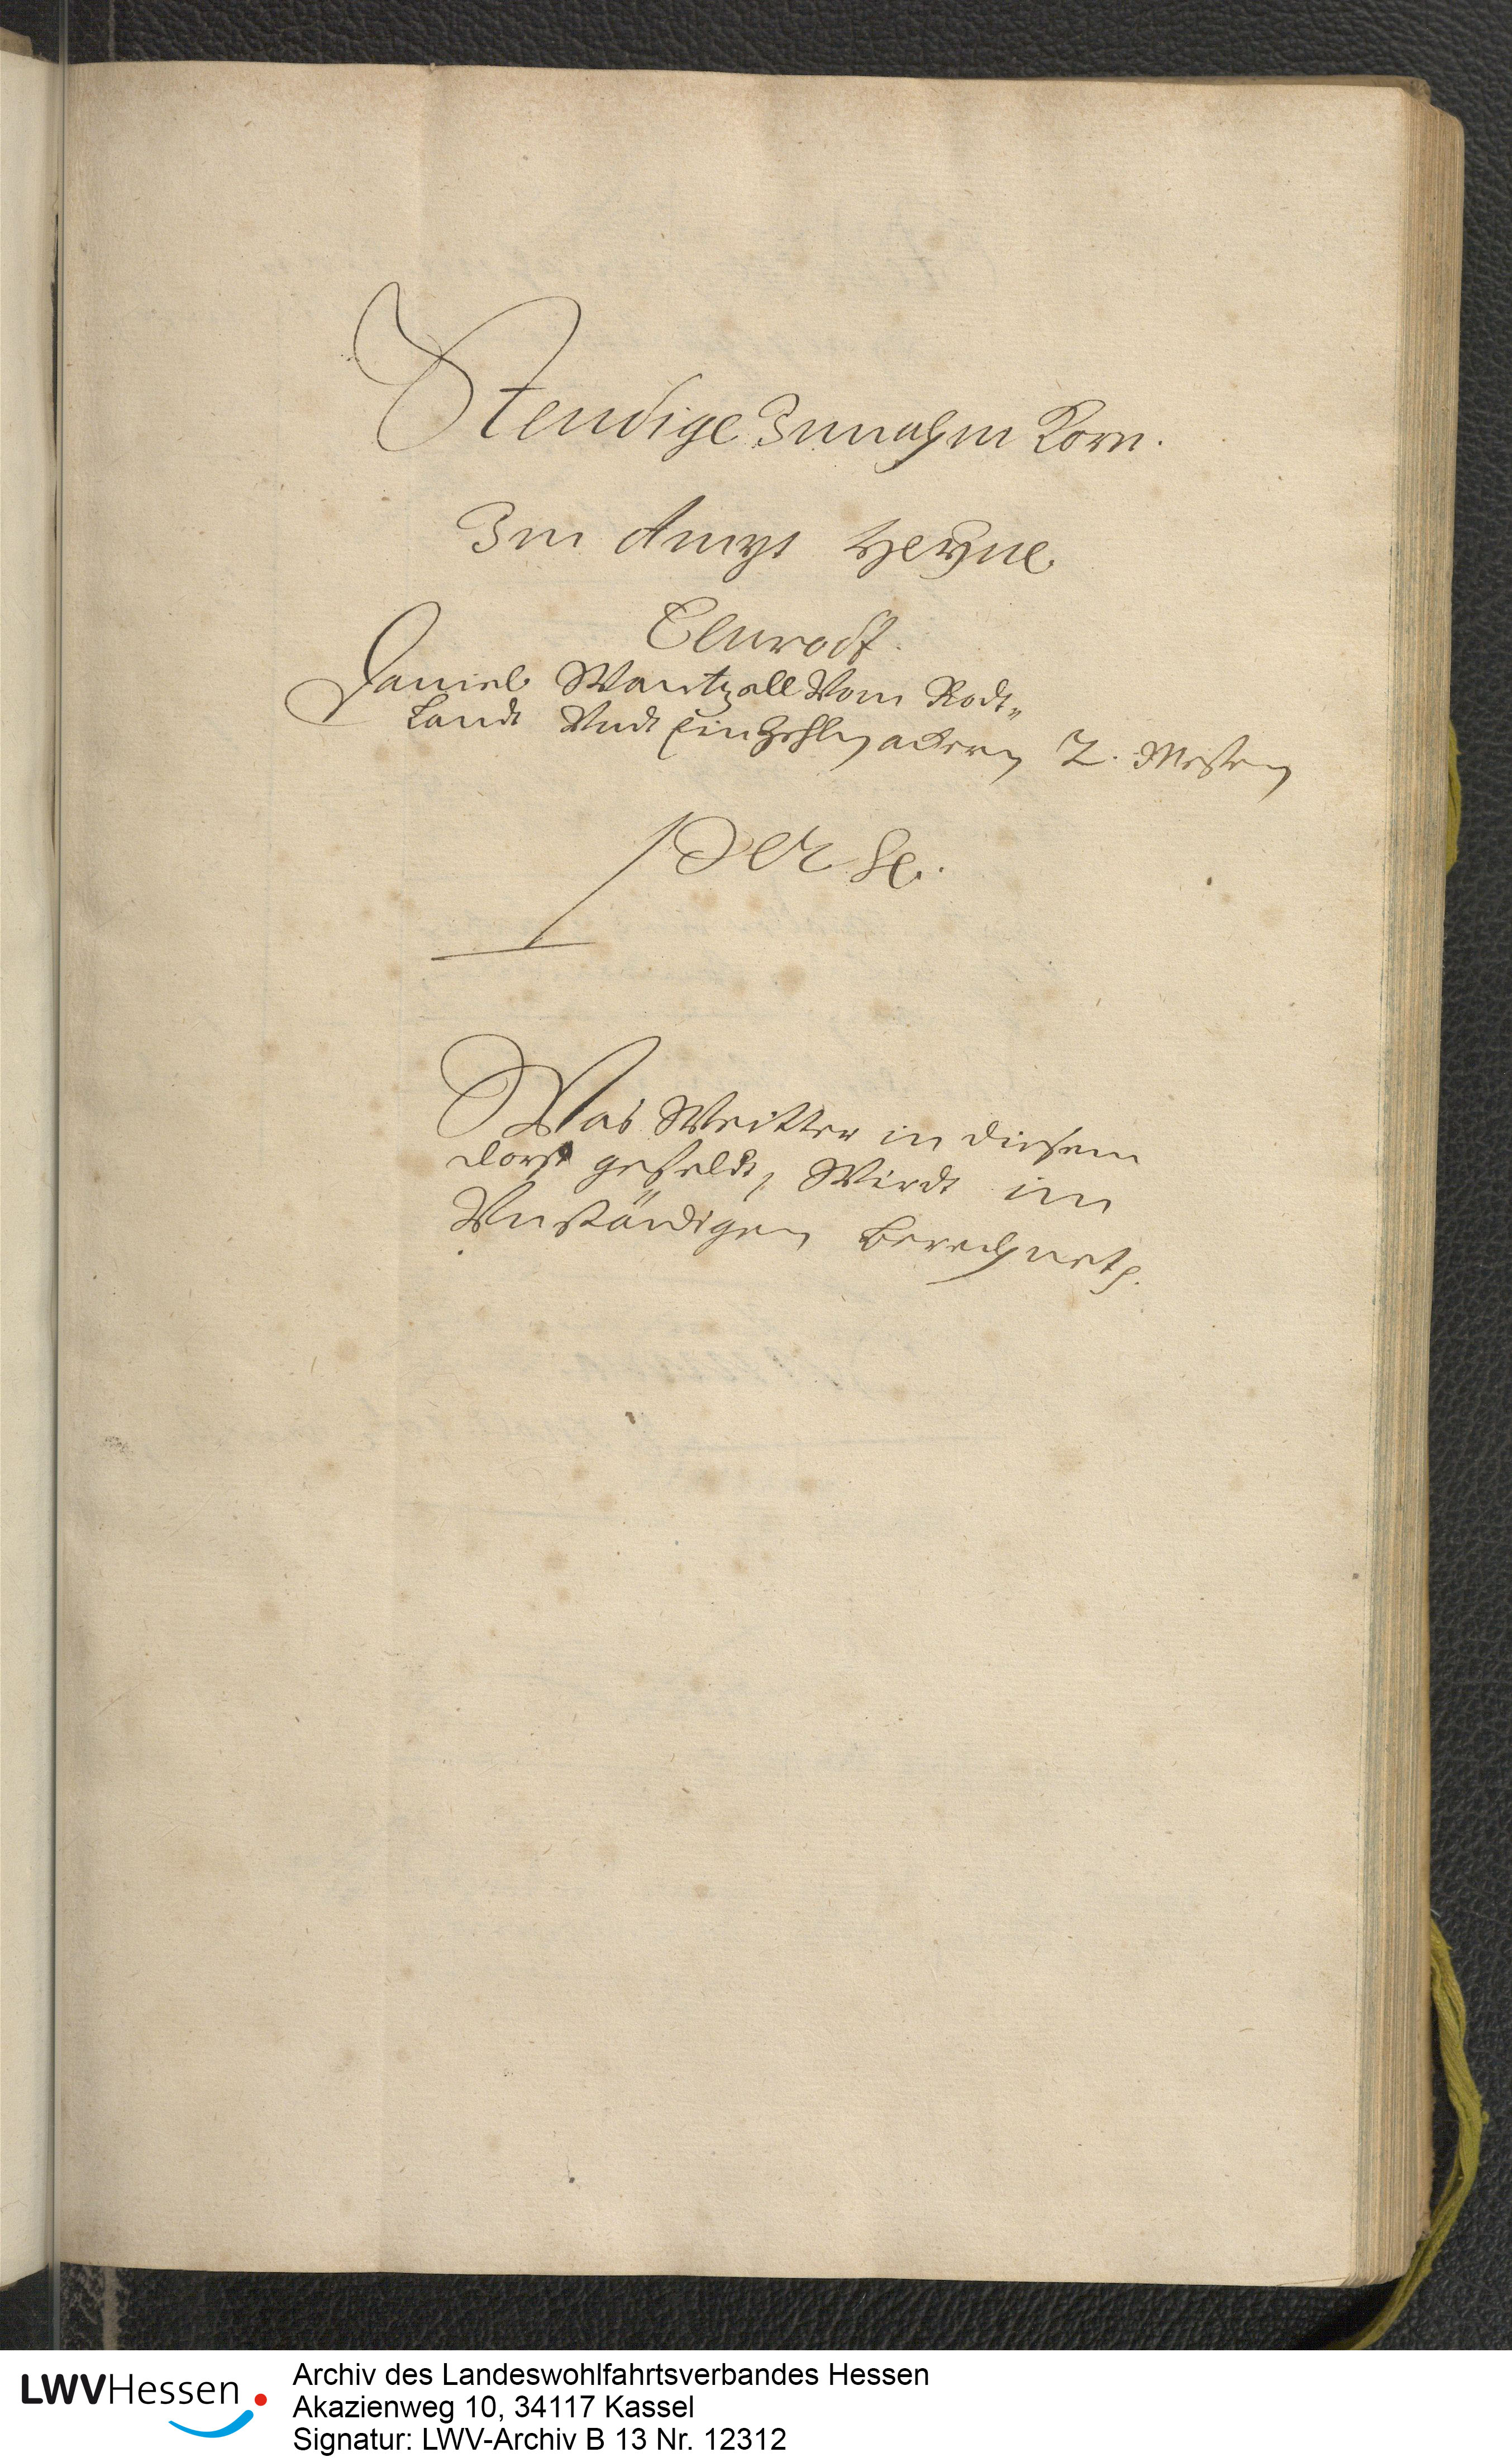 Stendige Innahm Korn.
Im Ampt Heyne
Elnrodt.
Daniel Wantzell Vom Rodt„
Landt Vndt ackern 2. Mesten
per se.
Was Weitter in diesem
dorff gefeldt, Wirdt im
Vnständigen berechnet.
LWVHessen
Archiv des Landeswohlfahrtsverbandes Hessen
Akazienweg 10, 34117 Kassel
Signatur: LWV-Archiv B 13 Nr. 12312